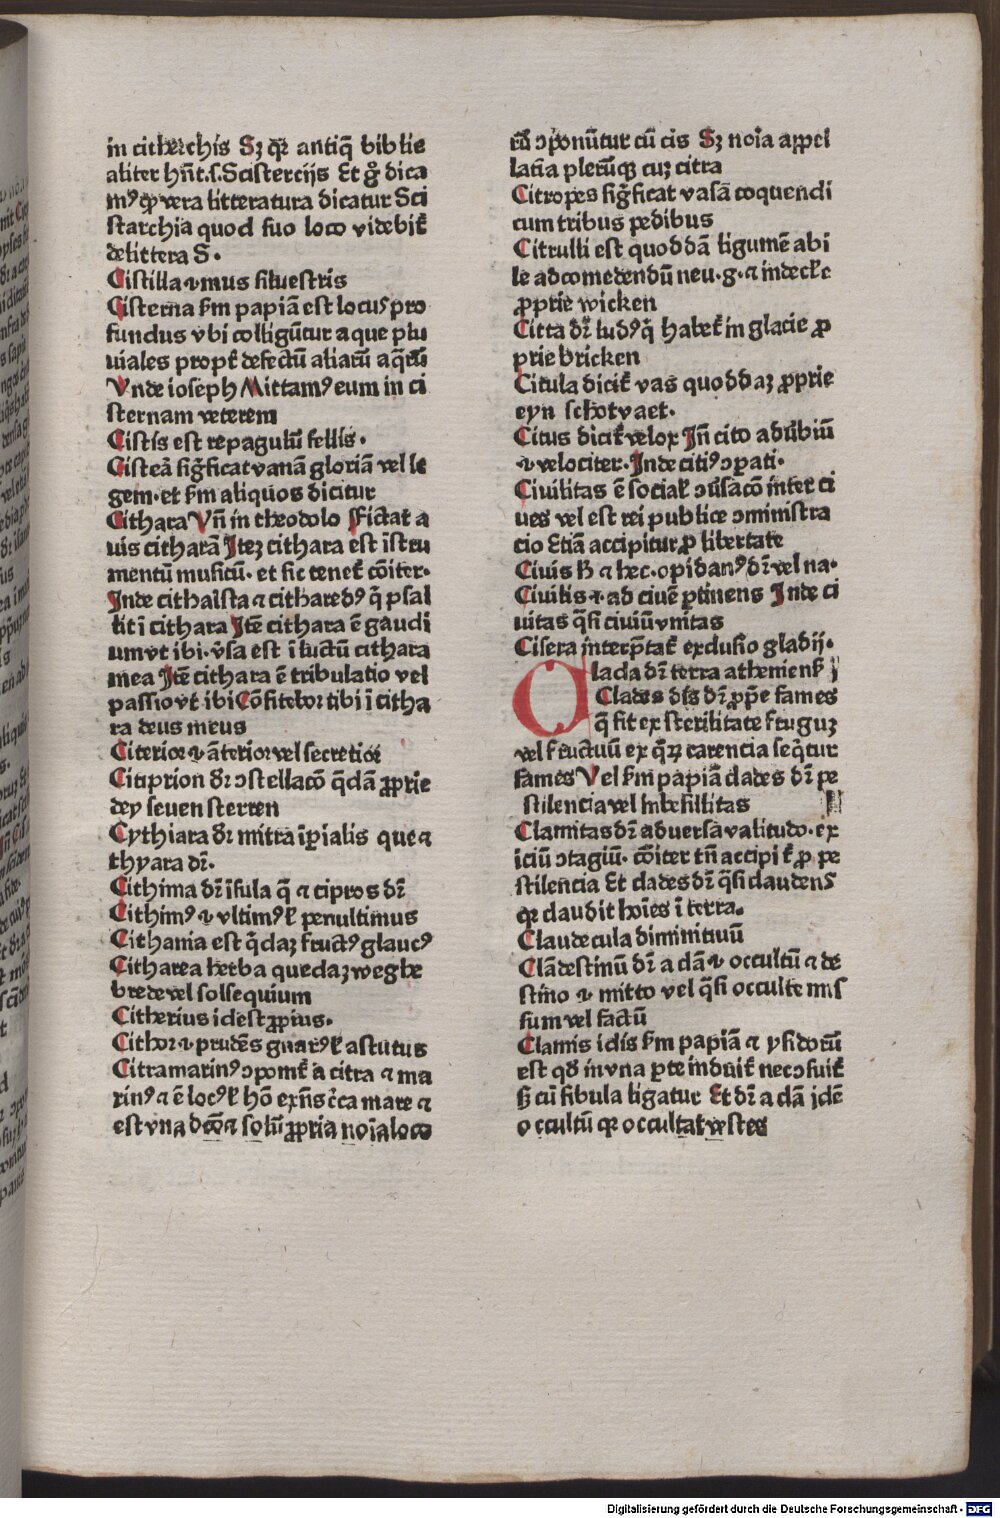 in citherchis Sꝫ qꝛ antiq̄ biblie
aliter hn̄t.ſ.Sciſtercijs Et gͦ dica
mꝰ ꝙ vera litteratura dicatur Sci
ſtarchia quod ſuo loco videbit᷑
de littera S.
Ciſtilla .i. mus ſilueſtris
Ciſterna ẜm papiā eſt locuſ pro
fundus vbi colligūtur aque plu
uiales propt᷑ defectū aliarū aq̄rū
Vnde ioſeph Mittamꝰ eum in ci
ſternam veterem
Ciſtis eſt repagulū fellis.
Ciſteā ſigͥficat vanā gloriā vel le
gem.et ẜm aliquos dicitur
Cithara Vn̄ in theodolo Fictat a
uis citharā Itēꝫ cithara eſt īſtru
mentū muſicū. et ſic tenet᷑ cōiter.
Inde cithariſta ⁊ citharedꝰ q̄ pſal
lit ī cithara Itē cithara ē gaudi
um vt ibi.v̄ſa eſt ī luctū cithara
mea Itē cithara ē tribulatio vel
paſſio vt ibi Cōfitebor tibi ī citha
ra deus meus
Citerior .i. āterior vel ſecretior
Citaprion dr̄ ↄſtellacō q̄dā ꝓprie
dey ſeuen ſterren
Cythiara dr̄ mitra īp̄ialis que ⁊
thyara dr̄.
Cithima dr̄ īſula q̄ ⁊ cipros dr̄
Cithimꝰ .i. vltimꝰ ł penultimus
Cithania eſt q̄daꝫ fructꝰ glaucꝰ
Citharea herba quedaꝫ weghe
brede vel ſolſequium
Citherius id eſt ꝓpius.
Cithor .i. prudēs gnarꝰ ł aſtutus
Citramarinꝰ ↄponit᷑ a citra ⁊ ma
rinꝰ ⁊ ē locꝰ ł hō exn̄s c̄ca mare ⁊
eſt vna dcō ⁊ ſolū ꝓpria noīa loco
rū ↄponūtur cū cis Sꝫ noīa appel
latīa plerūqꝫ cuꝫ citra
Citropes ſigͥficat vaſā coquendi
cum tribus pedibus
Citrulli eſt quoddā ligumē abi
le ad comedendū neu.g.⁊ īndecłe
ꝓprie wicken
Citta dr̄ ludꝰ q̄ habet᷑ in glacie ꝓ
prie bricken
Citula dicit᷑ vas quoddaꝫ ꝓprie
eyn ſchotvaet.
Citus dicit᷑ velox Jn̄ cito adūbiū
.i. velociter. Inde citiꝰ ↄpati.
Ciuilitas ē ſocial᷑ ↄūſacō inter ci
ues vel eſt rei publice ↄminiſtra
cio Etiā accipitur ꝓ libertate
Ciuis h̄ ⁊ hec. opidanꝰ dr̄ vel na.
Ciuilis .i. ad ciuē ꝑtinens Inde ci
uitas q̄ſi ciuiū vnitas
Ciſera interp̄tat᷑ excluſio gladij.
Clada dr̄ terra athenienſ᷑
Clades dis dr̄ ꝓpͥe fames
q̄ fit ex ſterilitate fruguꝫ
vel fructuū ex q̄ꝝ carencia ſeq̄tur
fames Vel ẜm papiā clades dr̄ pe
ſtilencia vel imbecillitas
Clamitas dr̄ aduerſa valitudo. ex
iciū ↄtagiū. cōiter tn̄ accipit᷑ ꝓ pe
ſtilencia Et clades dr̄ q̄ſi claudens
qꝛ claudit hoīes ī terra.
Claudecula diminitiuū
Clādeſtinū dr̄ a dā .i. occultū ⁊ de
ſtino .i. mitto vel q̄ſi occulte miſ
ſum vel factū
Clamis idis ẜm papiā ⁊ yſidorū
eſt qd̄ in vna parte induit᷑ nec ↄſuit᷑
ſꝫ cū fibula ligatur Et dr̄ a clā idē
occultū qꝛ occultat veſtes
Digitalisierung gefördert durch die Deutsche Forschungsgemeinschaft - DFG